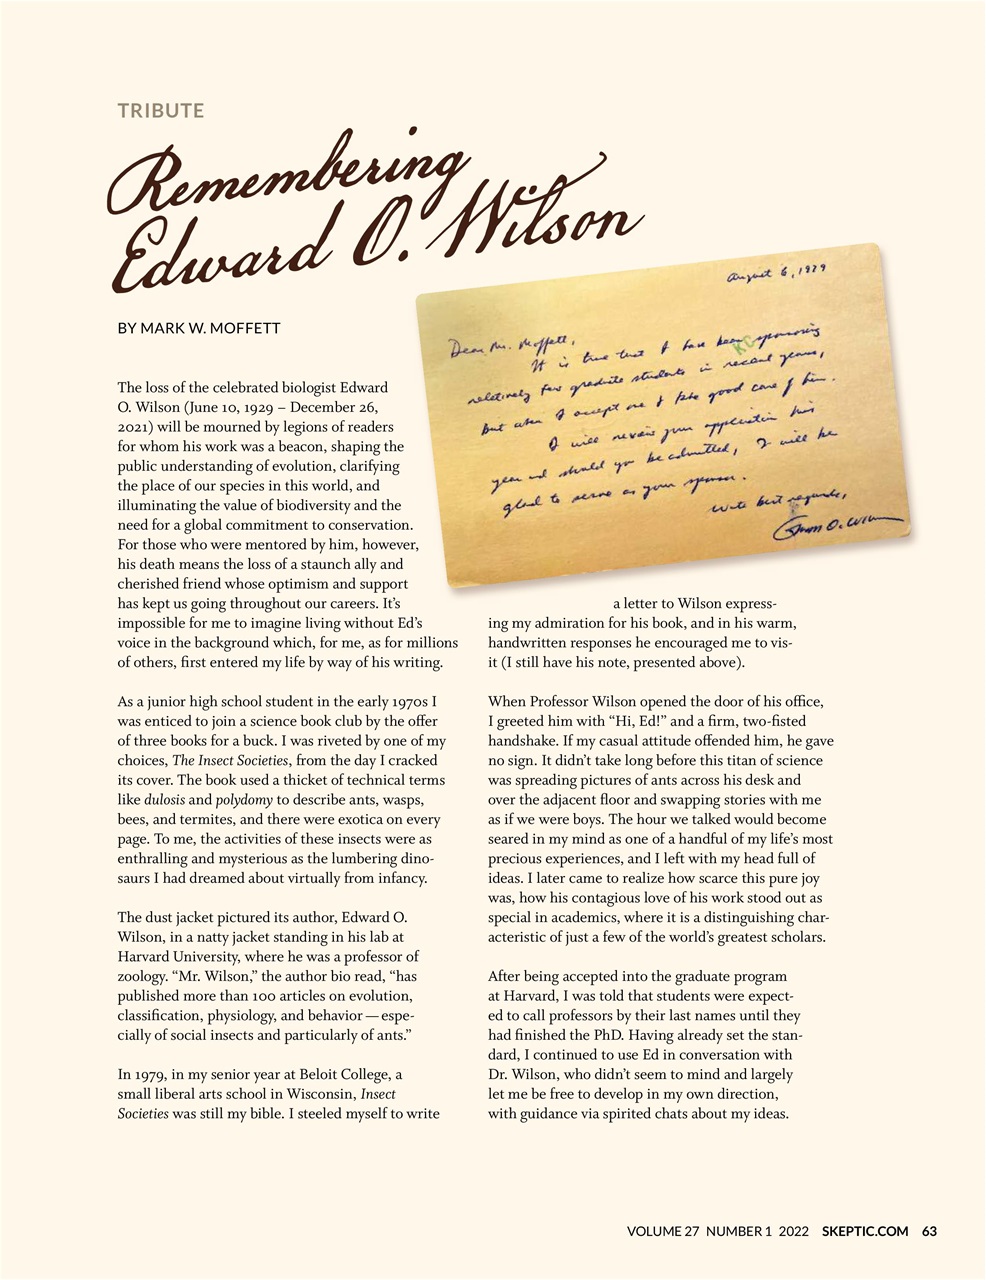 TRIBUTE
Remembering
Edward O. Wilson
BY MARK W. MOFFETT
August 6, 1979
Dear Mr. Moffett,
It is true that I have been sponsoring
relatively few graduate students in recent years,
but when I accept one I take good care of him.
I will review your application this
year and should you be admitted, I will be
glad to serve as your sponsor.
With best regards,
Edward O. Wilson
The loss of the celebrated biologist Edward
O. Wilson (June 10, 1929 – December 26,
2021) will be mourned by legions of readers
for whom his work was a beacon, shaping the
public understanding of evolution, clarifying
the place of our species in this world, and
illuminating the value of biodiversity and the
need for a global commitment to conservation.
For those who were mentored by him, however,
his death means the loss of a staunch ally and
cherished friend whose optimism and support
has kept us going throughout our careers. It’s
impossible for me to imagine living without Ed’s
voice in the background which, for me, as for millions
of others, first entered my life by way of his writing.
As a junior high school student in the early 1970s I
was enticed to join a science book club by the offer
of three books for a buck. I was riveted by one of my
choices, The Insect Societies, from the day I cracked
its cover. The book used a thicket of technical terms
like dulosis and polydomy to describe ants, wasps,
bees, and termites, and there were exotica on every
page. To me, the activities of these insects were as
enthralling and mysterious as the lumbering dino-
saurs I had dreamed about virtually from infancy.
The dust jacket pictured its author, Edward O.
Wilson, in a natty jacket standing in his lab at
Harvard University, where he was a professor of
zoology. “Mr. Wilson,” the author bio read, “has
published more than 100 articles on evolution,
classification, physiology, and behavior — espe-
cially of social insects and particularly of ants.”
In 1979, in my senior year at Beloit College, a
small liberal arts school in Wisconsin, Insect
Societies was still my bible. I steeled myself to write
a letter to Wilson express-
ing my admiration for his book, and in his warm,
handwritten responses he encouraged me to vis-
it (I still have his note, presented above).
When Professor Wilson opened the door of his office,
I greeted him with “Hi, Ed!” and a firm, two-fisted
handshake. If my casual attitude offended him, he gave
no sign. It didn’t take long before this titan of science
was spreading pictures of ants across his desk and
over the adjacent floor and swapping stories with me
as if we were boys. The hour we talked would become
seared in my mind as one of a handful of my life’s most
precious experiences, and I left with my head full of
ideas. I later came to realize how scarce this pure joy
was, how his contagious love of his work stood out as
special in academics, where it is a distinguishing char-
acteristic of just a few of the world’s greatest scholars.
After being accepted into the graduate program
at Harvard, I was told that students were expect-
ed to call professors by their last names until they
had finished the PhD. Having already set the stan-
dard, I continued to use Ed in conversation with
Dr. Wilson, who didn’t seem to mind and largely
let me be free to develop in my own direction,
with guidance via spirited chats about my ideas.
VOLUME 27 NUMBER 1 2022 SKEPTIC.COM 63